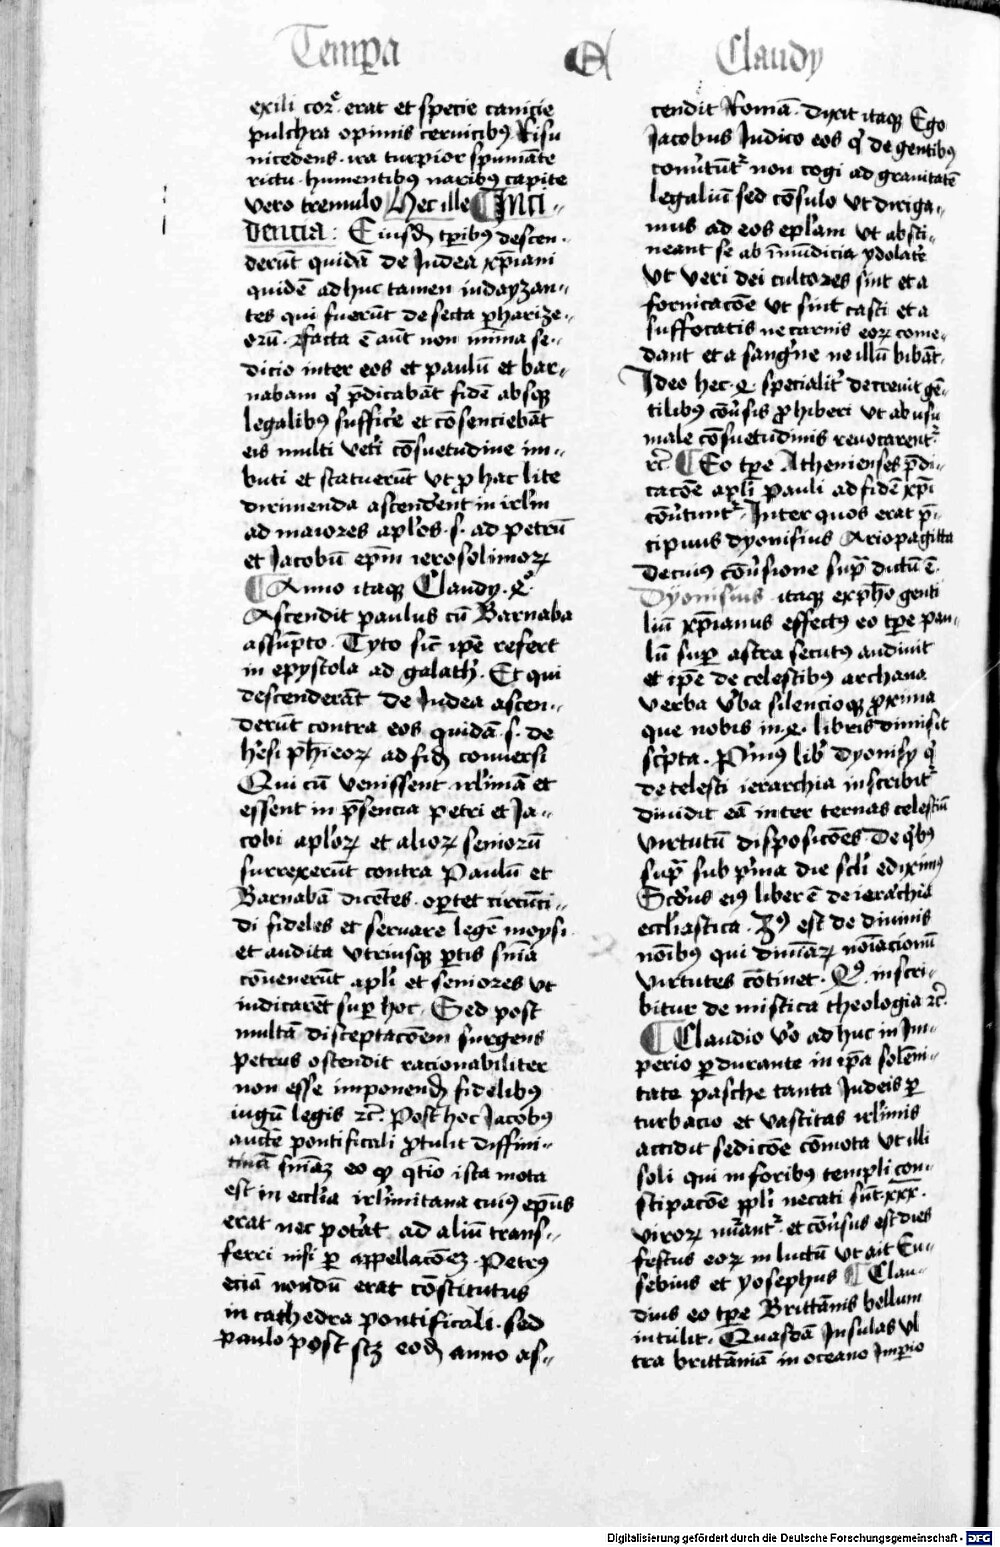 Tempa
Claudy
exili cor̄. erat et specie canicie
pulchra opimis cervicibꝯ Risu
nicedens. ira turpior spumāte
rictu. humentibus naribꝯ capite
vero tremulo Hec ille Inci-
dencia: Eiusd̄ tp̄ibꝯ descen-
derūt quidā de Judea xp̄iani
quidē adhuc tamen iudayzan-
tes qui fuerūt de secta pharize-
orū. Et facta ē aūt non mīma se-
dicio inter eos et paulū et bar-
nabam qͥ p̄dicabāt fidē absqꝫ
legalibꝯ suffic̄e et cōsenciebāt
eis multi vet̄i cōsuetudine im-
buti et statuerūt ut ꝓ hac lite
dirimenda ascenderēt in irl̄m
ad maiores apl̄os .s. ad petrū
et Jacobū ep̄m ierosolimoꝝ
Anno itaqꝫ Claudy .4o.
Ascendit paulus cū Barnaba
assūpto. Tyto sic̄ ip̄e refert
in epystola ad galath̄. Et qui
descenderāt de Judea ascen-
derūt contra eos quidā .s. de
h̄esi ph̄ieoꝝ ad fid̄ conversi
Qui cū venissent irl̄imā et
essent in p̄sencia petri et Ja-
cobi apl̄oꝝ et alioꝝ seniorū
surrexerūt contra Paulū et
Barnabā dicētes. oportet circūci-
di fideles et servare legē moysi
et audita utriusqꝫ ꝑtis sn̄ia
cōvenerūt apl̄i et seniores ut
iudicarēt suꝑ hoc. Sed post
multā disceptacōem surgens
petrus ostendit racionabiliter
non esse imponend̄ fidelibꝯ
iugū legis ⁊c̄. Post hoc Jacobꝯ
aucte pontificali ꝓtulit diffini-
tivā sn̄iaꝫ eo qꝫ q̄tio ista mota
est in ecclīa irl̄imitana cuiꝯ ep̄us
erat nec pot̄at ad aliū trans-
ferri nisi ꝑ appellacōeꝫ. Petrꝯ
eciā nondū erat cōstitutus
in cathedra pontificali. sed
paulo post scꝫ eod̄ anno as-
cendit Romā. dixit itaqꝫ Ego
Jacobus Judico eos qͥ de gentibꝯ
cōv̄tūtr̄ non cogi ad gravitatē
legaliū sed cōsulo ut diriga-
mus ad eos epl̄am ut absti-
neant se ab īmūdicia ydolat̄e
ut veri dei cultores sint et a
fornicacōe ut sint casti et a
suffocatis ne carnis eoꝝ come-
dant et a sanḡne ne illū bibāt.
Ideo hec .4. specialit̄ decrevit gē-
tilibꝯ cōv̄sis ꝓhiberi ut ab usu
male cōsuetudinis revocarentr̄
⁊c̄. Eo tp̄e Athenienses p̄di-
cacōe apl̄i pauli ad fidē xp̄i
cōv̄tuntr̄. Inter quos erat p̄-
cipuus dyonisius Ariopagitta
De cuiꝯ cōv̄sione sup̄ dictū ē.
Dyonisius itaqꝫ ex ph̄o genti
liū xp̄ianus effectꝯ eo tp̄e pau-
lū suꝑ astra secutꝯ audivit
et ip̄e de celestibꝯ archana
verba v̄ba silencioqꝫ ꝓxima
que nobis in .4. libris dimisit
sc̄pta. P̄imꝯ lib̄ Dyonisy qͥ
de celesti ierarchia inscribitr̄
dividit eā inter ternas celestiū
virtutū disposicōes. De qͥbꝯ
sup̄ sub p̄ma die scl̄i ediximꝯ
Sc̄dus eiꝯ liber ē de ierarchia
eccl̄iastica. 3ꝯ est de divinis
nōibꝯ qui divīaꝝ noīacionū
virtutes cōtinet. 4ꝯ. inscri-
bitur de mistica theologia ⁊c̄.
Claudio v̄o adhuc in Im-
perio ꝑdurante in ip̄a solēni-
tate pasche tanta Judeis ꝑ
turbacio et vastitas irl̄imis
accidit sedicōe cōmota ut illi
soli qui in foribꝯ templi con-
stipacōe ppl̄i necati sūt .xxx.
viroꝝ nūantr̄. et cōv̄sus est dies
festus eoꝝ in luctū ut ait Eu-
sebius et yosephus Clau-
dius eo tp̄e Brittānis bellum
intulit. Quasdā Insulas ul
tra brittāniā in oceano Imperio